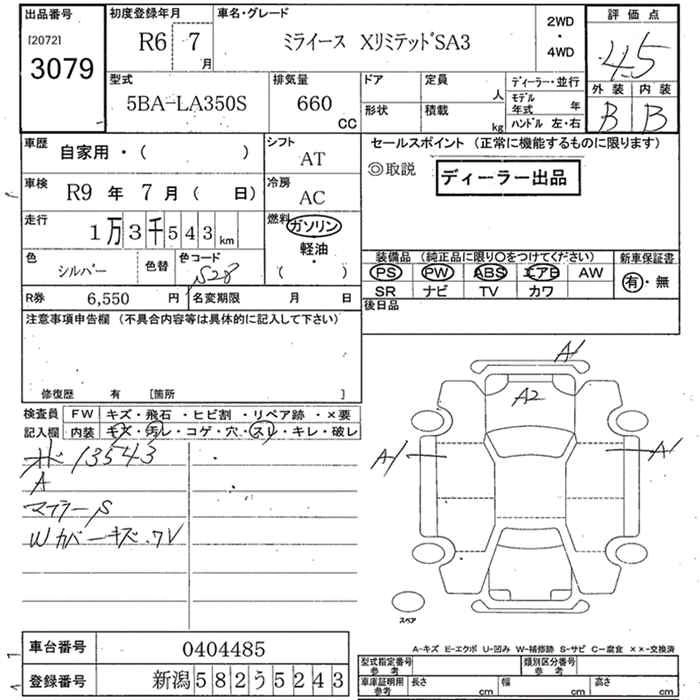 出品番号 初度登録年月 車名・グレード 2WD ・ 4WD 評価点
[2072]
3079
R6 7月 ミライース XリミテッドSA3 4.5
型式 排気量 ドア 定員 人 ディーラー・並行 外装 内装
5BA-LA350S 660 CC 形状 積載 kg モデル年式 年 B B
ハンドル 左・右
車歴 自家用・( ) シフト AT セールスポイント (正常に機能するものに限ります)
◎取説 ディーラー出品
車検 R9 年 7 月 ( 日) 冷房 AC
走行 1万3千543km 燃料 ガソリン
軽油・
( )
色 シルバー 色替 色コード S28
装備品 (純正品に限り○をつけてください) 新車保証書
PS PW ABS エアB AW 有・無
SR ナビ TV カワ
R券 6,550 円 名変期限 月 日 後日品
注意事項申告欄 (不具合内容等は具体的に記入して下さい)
修復歴 有 [箇所 ]
検査員 FW キズ・飛石・ヒビ割・リペア跡・×要
記入欄 内装 キズ・汚レ・コゲ・穴・スレ・キレ・破レ
13543
A
マフラーS
Wカバーキズ.
A1
A2
A1 A1
スペア
車台番号 0404485
登録番号 新潟582う5243
A-キズ E-エクボ U-凹み W-補修跡 S-サビ C-腐食 ××-交換済
型式指定番号 参考 類別区分番号 参考
車庫証明用 参考 長さ cm 幅 cm 高さ cm